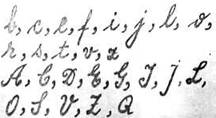 b, c, e, f, i, j, l, o,
r, s, t, v, z
A, C, D, E, G, I, J, L,
O, S, V, Z, Q